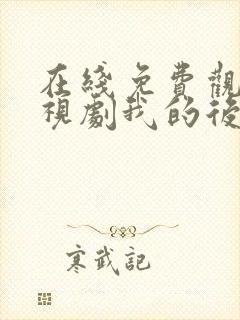 在綫免費觀
視劇我的後
寒武記